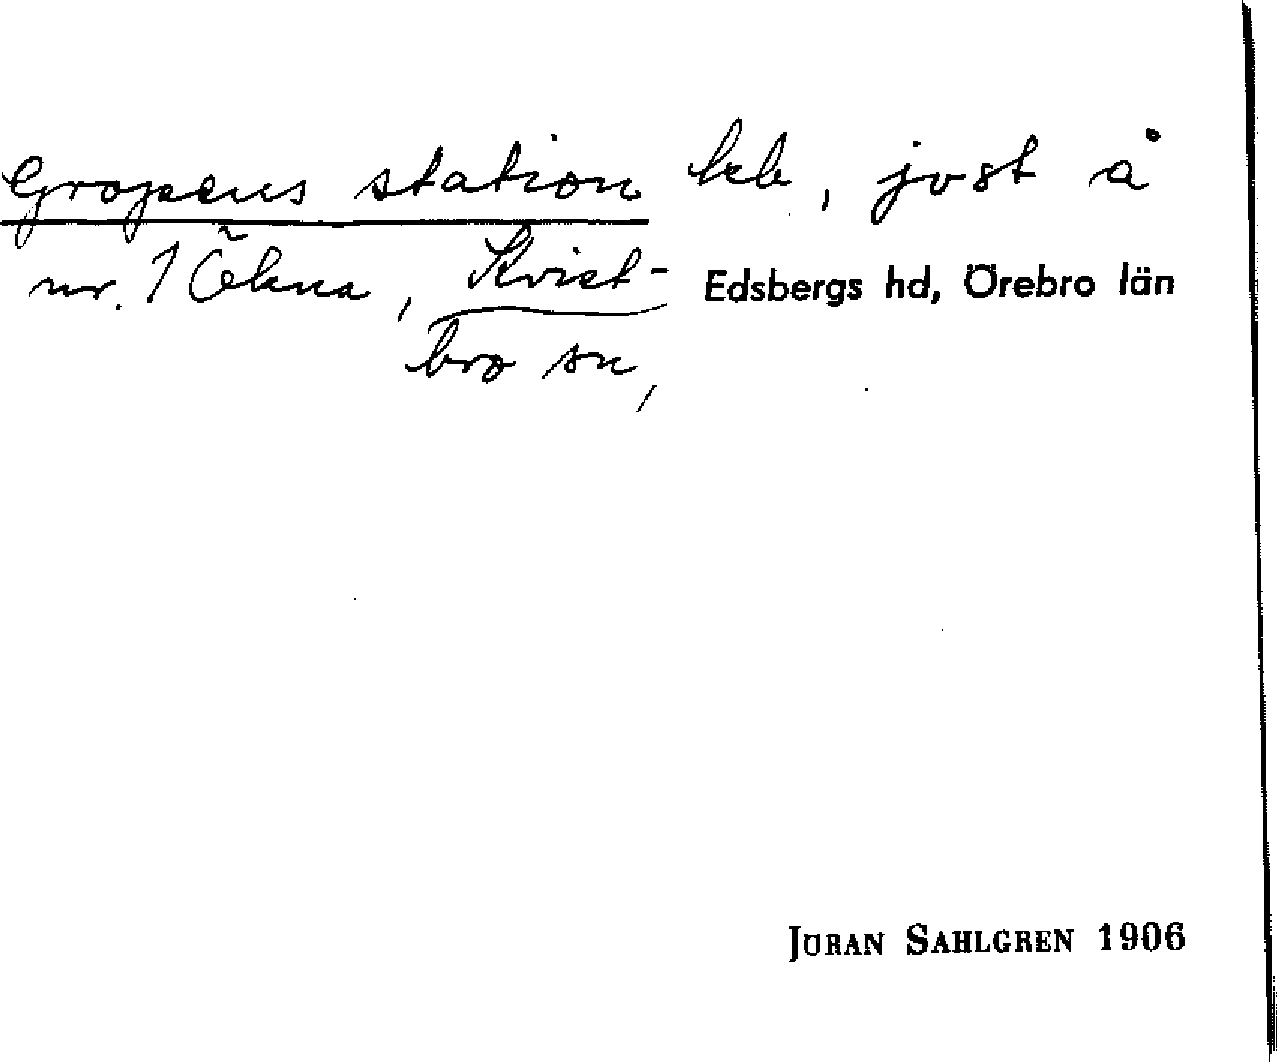 Gropens station beb, jvst å
nr. 1 Ökna, Kvist-
bro sn,
Edsbergs hd, Örebro län
JÖRAN SAHLGREN 1906